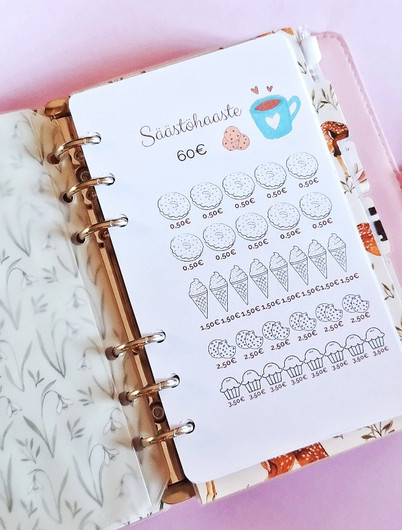 Säästöhaaste
60€
0.50€ 0.50€ 0.50€ 0.50€ 0.50€
0.50€ 0.50€ 0.50€ 0.50€ 0.50€
1.50€ 1.50€ 1.50€ 1.50€ 1.50€ 1.50€ 1.50€ 1.50€
2.50€ 2.50€ 2.50€ 2.50€ 2.50€ 2.50€
3.50€ 3.50€ 3.50€ 3.50€ 3.50€ 3.50€ 3.50€ 3.50€